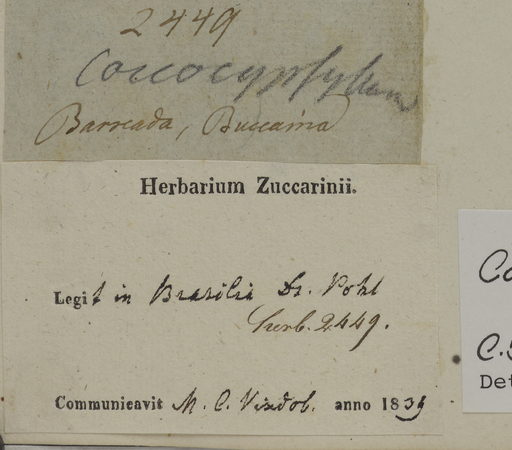 2449
Coccocypselum
Barreada, Buccaina
Herbarium Zuccarinii.
Legit in Brasilia Dr. Pohl
herb. 2449.
Communicavit M. C. Vindob. anno 1839
Co
C.
Det